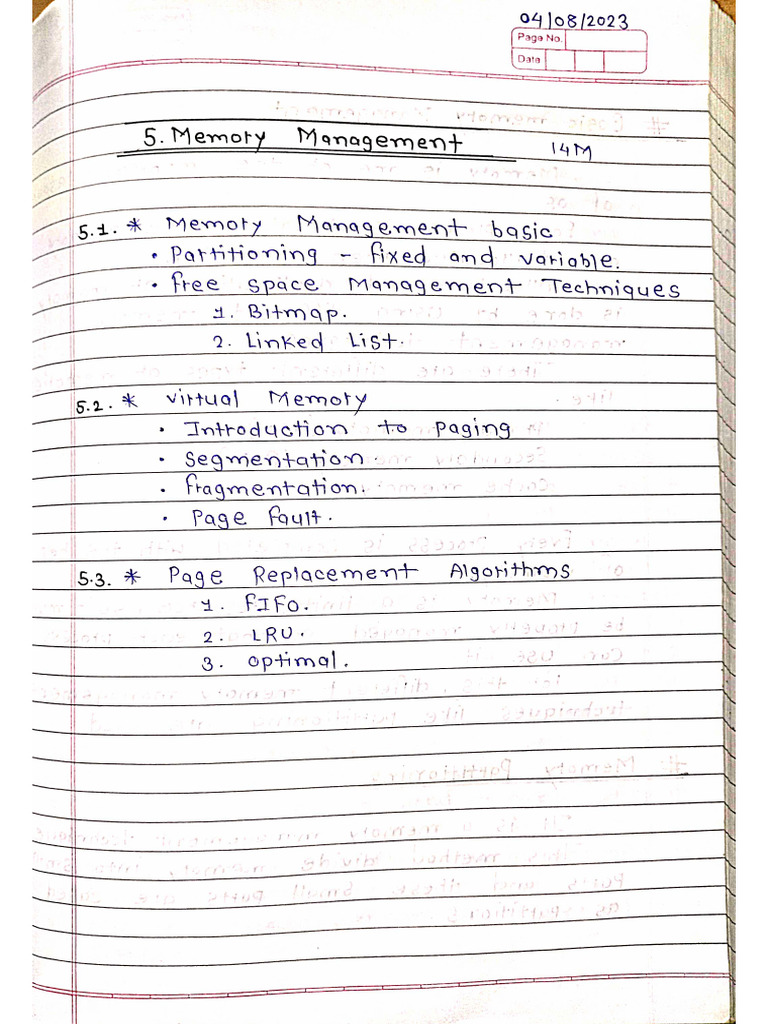 04/08/2023
Page No.
Date
5. Memory Management 14M
5.1. * Memory Management basic
• Partitioning - fixed and variable.
• free space Management Techniques
1. Bitmap.
2. Linked List.
5.2. * Virtual Memory
• Introduction to paging
• Segmentation
• fragmentation.
• Page fault.
5.3. * Page Replacement Algorithms
1. FIFO.
2. LRU.
3. Optimal.